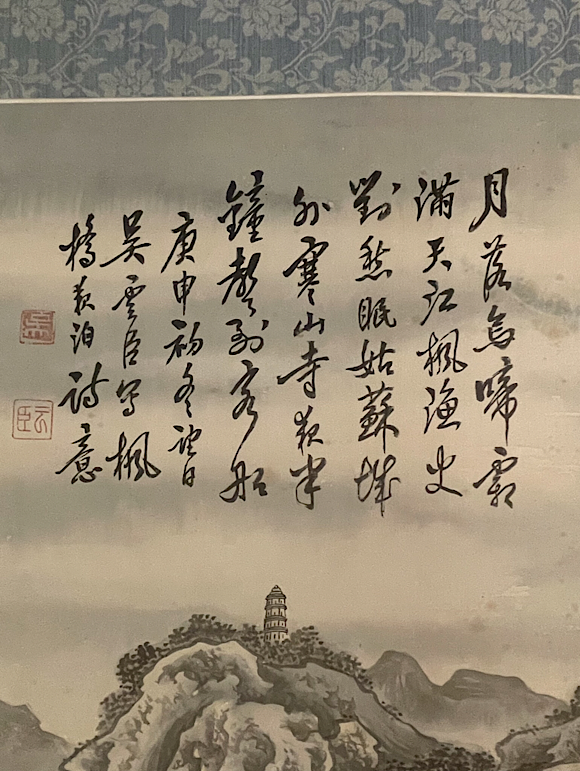 月落烏啼霜
滿天江楓漁火
對愁眠姑蘇城
外寒山寺夜半
鐘聲到客船
庚申初冬望日
吳雲臣寫楓
橋夜泊詩意
吳
雲臣